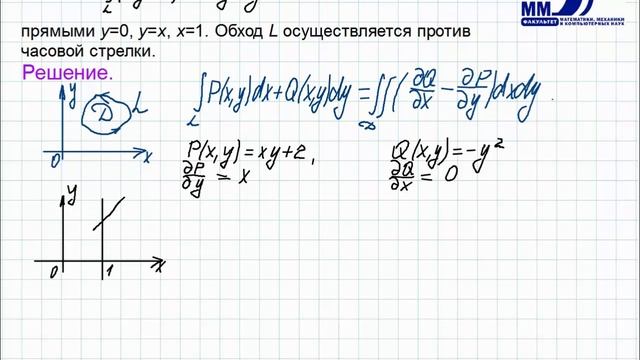 L
прямыми y=0, y=x, x=1. Обход L осуществляется против
часовой стрелки.
Решение.
ММ
ФАКУЛЬТЕТ
МАТЕМАТИКИ, МЕХАНИКИ
И КОМПЬЮТЕРНЫХ НАУК
y D L
0 x
∫_L P(x,y)dx+Q(x,y)dy = ∬_D (∂Q/∂x - ∂P/∂y)dxdy.
P(x,y)=xy+2, Q(x,y)=-y²
∂P/∂y = x ∂Q/∂x = 0
y
0 1 x